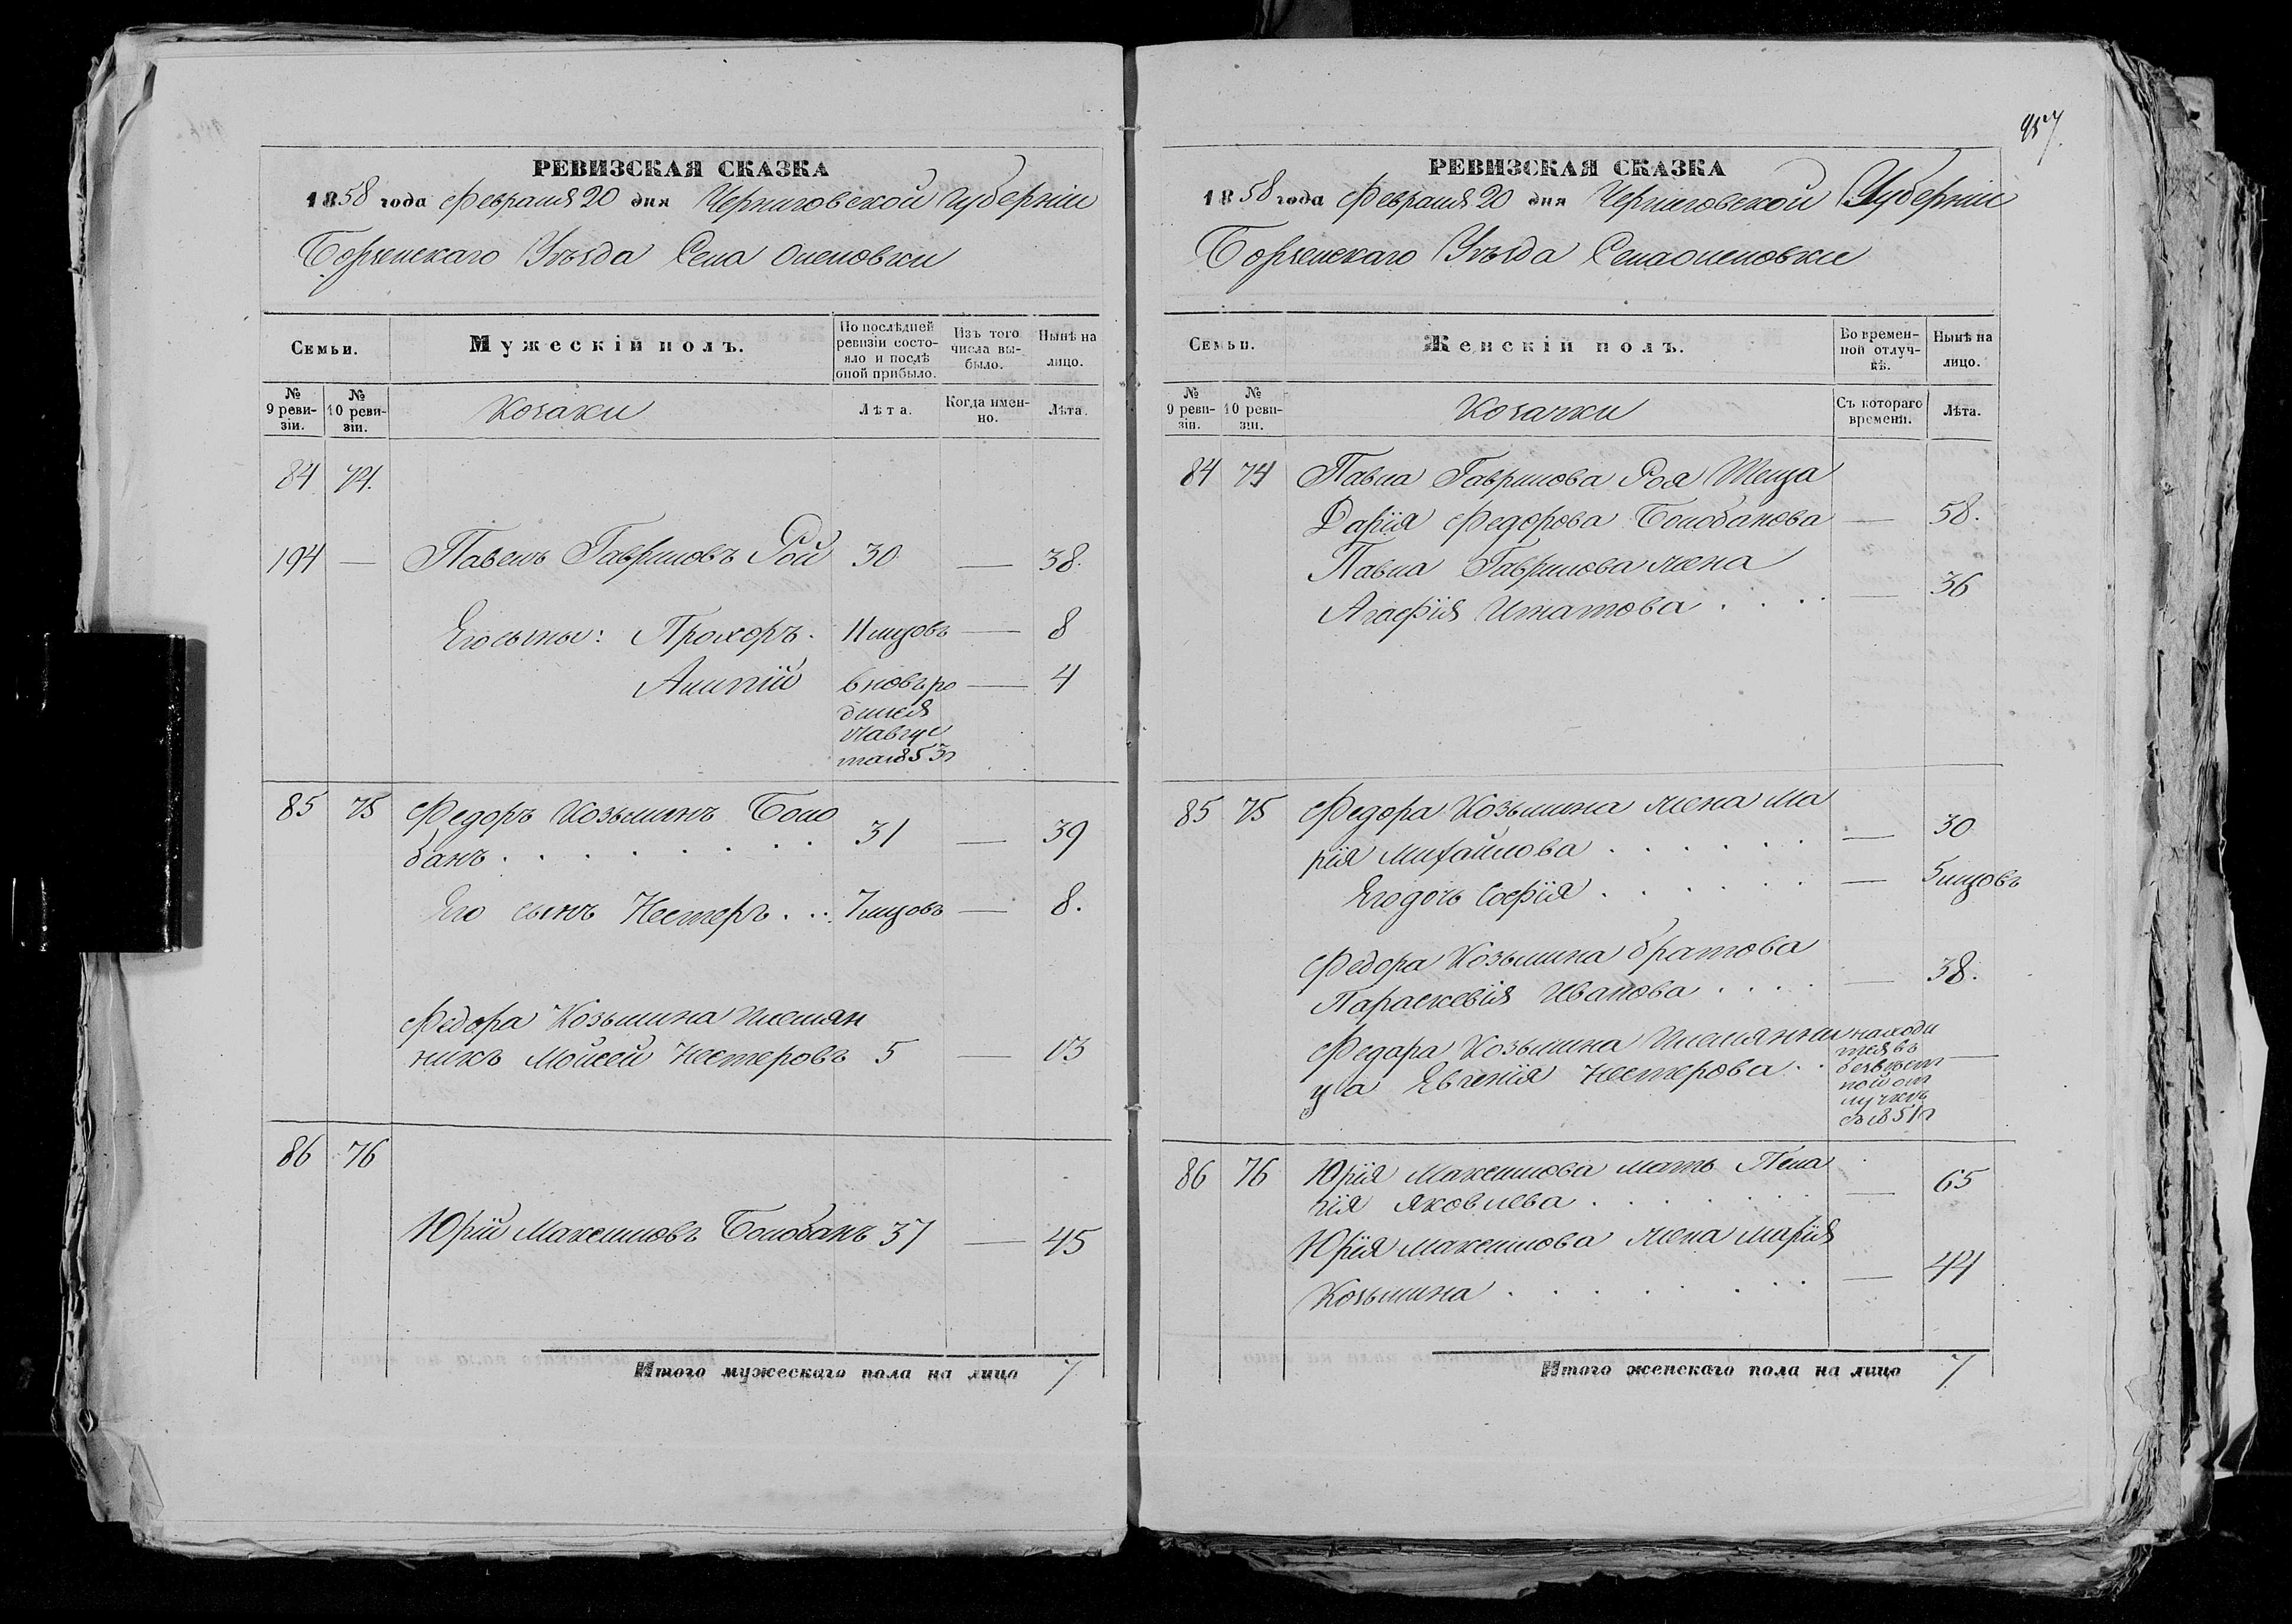 РЕВИЗСКАЯ СКАЗКА
1858 года Февраля 20 дня Черниговской Губерніи
Борзенскаго Уѣзда Села Оленовки
Семьи.
Мужескій полъ.
По послѣдней ревизіи состояло и послѣ оной прибыло.
Изъ того числа выбыло.
Нынѣ на лицо.
№ 9 ревизіи.
№ 10 ревизіи.
Козаки
Лѣта.
Когда именно.
Лѣта.
84 74.
194 — Павелъ Гавриловъ Рой 30 — 38.
Его сыны: Прохоръ. 11 мцовъ — 8
Алипій вновь ро — 4
дился
1853г
85 75 Федоръ Козьминъ Боло
банъ . . . . . . . . 31 — 39
Его сынъ Нестеръ . . . 7 мцовъ — 8.
Федора Козьмина племян
никъ Мойсей Нестеровъ 5 — 13
86 76
Юрій Максимовъ Болобанъ 37 — 45
Итого мужескаго пола на лицо 7
957.
РЕВИЗСКАЯ СКАЗКА
1858 года Февраля 20 дня Черниговской Губерніи
Борзенскаго Уѣзда Села Оленовки
Семьи.
Женскій полъ.
Во временной отлучкѣ.
Нынѣ на лицо.
№ 9 ревизіи.
№ 10 ревизіи.
Козачки
Съ котораго времени.
Лѣта.
84 74 Павла Гаврилова Роя Теща
Дарія Федорова Болобанова — 58.
Павла Гаврилова жена
Агафія Игнатова . . . . — 36
85 75 Федора Козьмина жена Ма
рія Михайлова . . . . . . — 30
Его дочь Софія . . . . . . — 5 мцовъ
Федора Козьмина братова
Параскевія Иванова . . . . — 38.
Федора Козьмина Племянни находи
ца Евгенія Нестерова . . тся въ —
безвѣст
ной от
лучкѣ
съ 1851г
86 76 Юрія Максимова мать Пела
гія Яковлева . . . . . . — 65
Юрія Максимова жена Марія
Козьмина . . . . . . . — 44
Итого женскаго пола на лицо 7